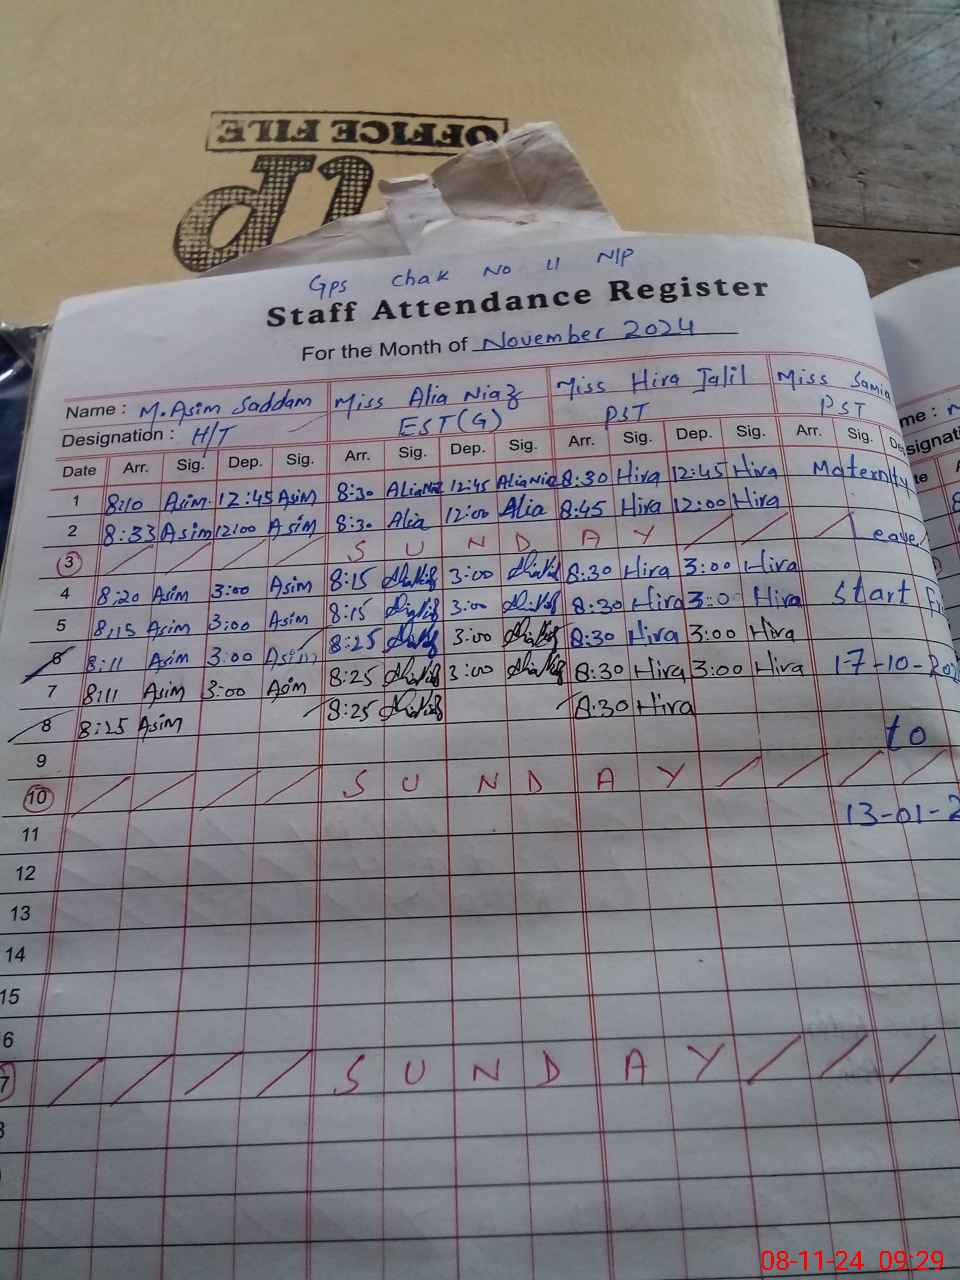 OFFICE FILE
Gps Chak No 11 NIP
Staff Attendance Register
For the Month of November 2024
Name : M. Asim Saddam Miss Alia Niaz Miss Hira Jalil Miss Samia
Designation : H/T EST(G) PST PST
Date Arr. Sig. Dep. Sig. Arr. Sig. Dep. Sig. Arr. Sig. Dep. Sig. Arr. Sig.
1 8:10 Asim 12:45 Asim 8:30 Alia Niaz 12:45 Alia Niaz 8:30 Hira 12:45 Hira Maternity
2 8:33 Asim 12:00 Asim 8:30 Alia 12:00 Alia 8:45 Hira 12:00 Hira
3 S U N D A Y Leave
4 8:20 Asim 3:00 Asim 8:15 3:00 8:30 Hira 3:00 Hira
5 8:15 Asim 3:00 Asim 8:15 3:00 8:30 Hira 3:00 Hira Start
6 8:11 Asim 3:00 Asim 8:25 3:00 8:30 Hira 3:00 Hira
7 8:11 Asim 3:00 Asim 8:25 3:00 8:30 Hira 3:00 Hira 17-10-20
8 8:25 Asim 8:25 8:30 Hira
9 to
10 S U N D A Y
11 13-01-2
12
13
14
15
6
7 S U N D A Y
08-11-24 09:29